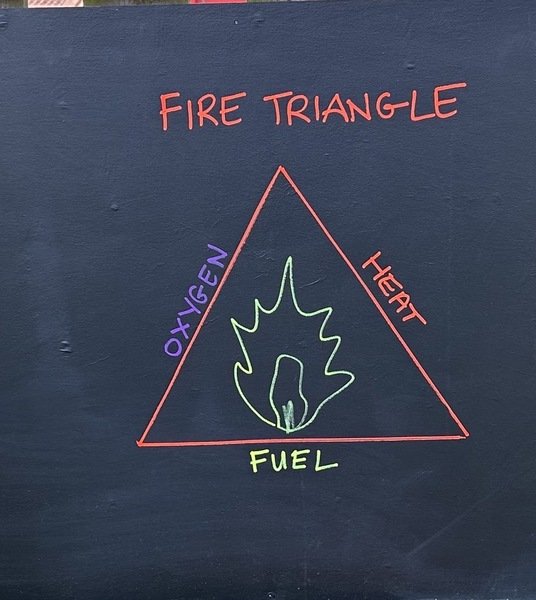 FIRE TRIANGLE
OXYGEN
HEAT
FUEL